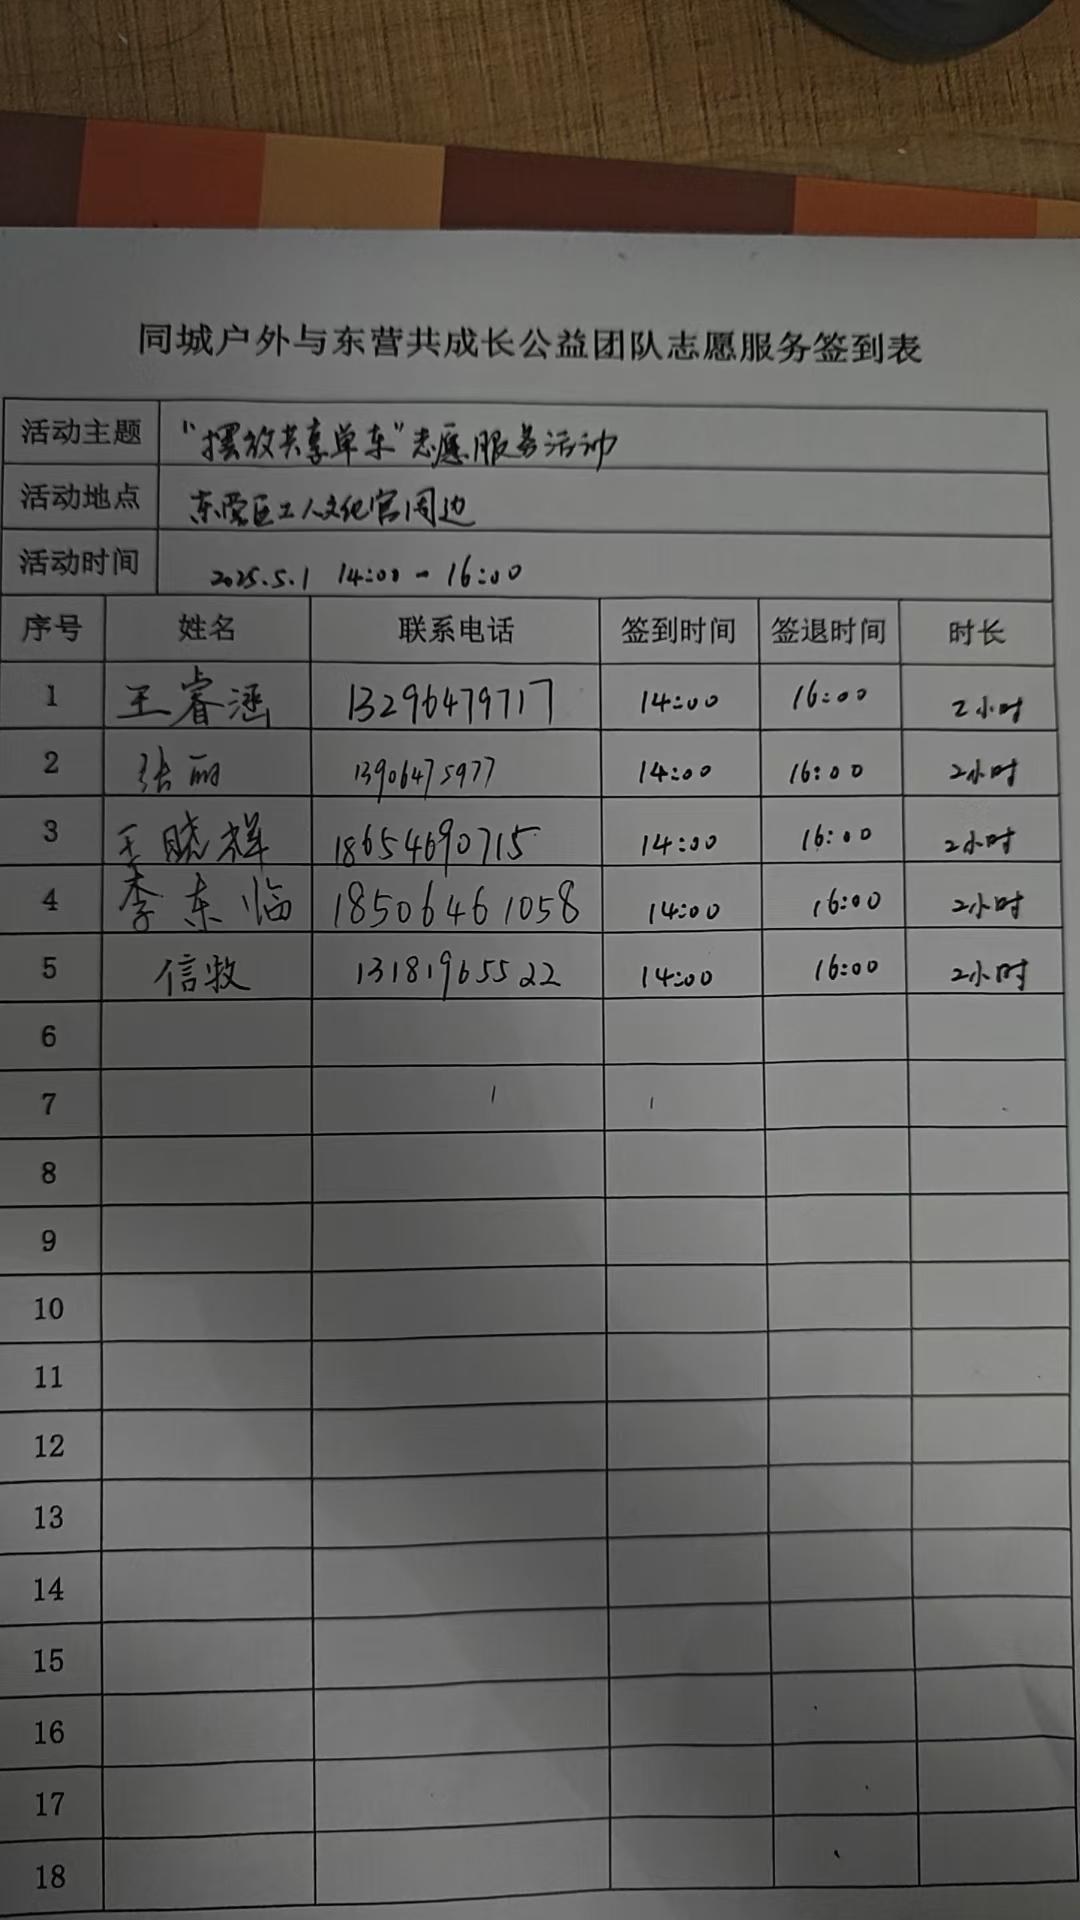 同城户外与东营共成长公益团队志愿服务签到表
活动主题 “摆放共享单车”志愿服务活动
活动地点 东营区工人文化宫周边
活动时间 2025.5.1 14:00-16:00
序号 姓名 联系电话 签到时间 签退时间 时长
1 王睿涵 13296479717 14:00 16:00 2小时
2 张丽 13906475977 14:00 16:00 2小时
3 王晓祥 18654690715 14:00 16:00 2小时
4 李东临 18506461058 14:00 16:00 2小时
5 信牧 13181965522 14:00 16:00 2小时
6
7
8
9
10
11
12
13
14
15
16
17
18